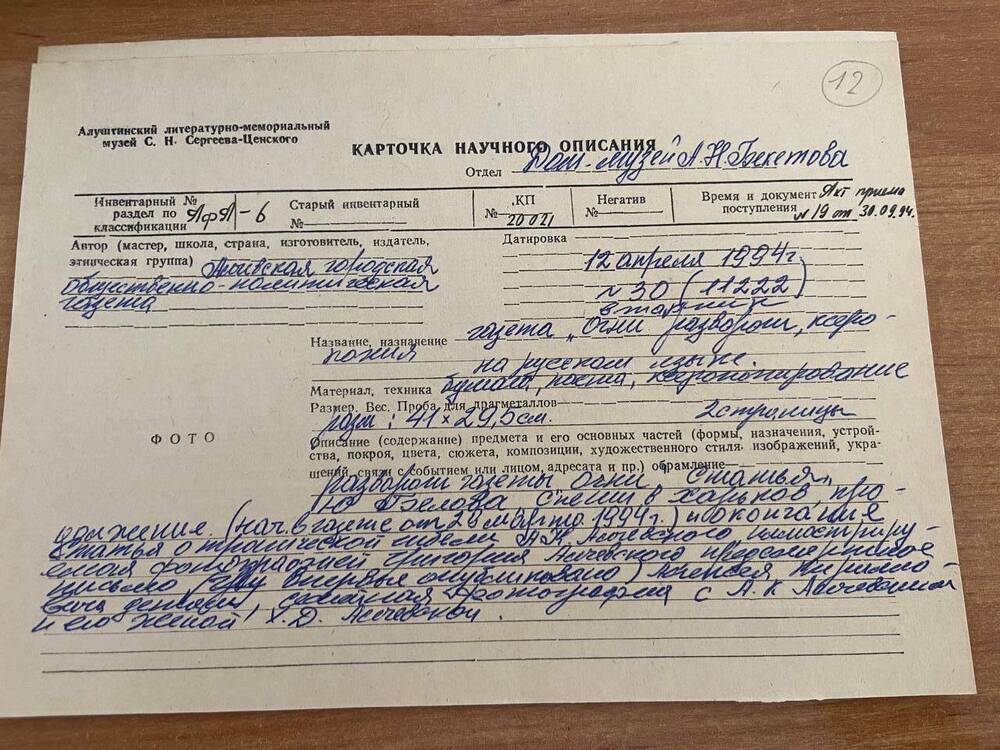 12
Алуштинский литературно-мемориальный
музей С. Н. Сергеева-Ценского
КАРТОЧКА НАУЧНОГО ОПИСАНИЯ
Отдел Дом-музей А Н Бекетова
Инвентарный № раздел по классификации АфА-6
Старый инвентарный №
КП № 20021
Негатив №
Время и документ поступления Акт приема № 19 от 30.09.94.
Автор (мастер, школа, страна, изготовитель, издатель,
этническая группа) городская
общественно-политическая
газета
Датировка
12 апреля 1994г.
№ 30 (11222)
вторник
Название, назначение газета „Огни разворот, ксеро-
копия на русском языке.
Материал, техника бумага, паста, ксерокопирование
Размер. Вес. Проба для драгметаллов
разм: 41×29,5 см. 2 страницы
ФОТО
Описание (содержание) предмета и его основных частей (формы, назначения, устрой-
ства, покроя, цвета, сюжета, композиции, художественного стиля, изображений, укра-
шений, связи с событием или лицом, адресата и пр.) обрамление
разворот газеты Огни" статья
Ю Белова Спеши в Харьков, про-
должение. (нач. в газете от 2 марта 1994г.) и окончания
статья о трагической гибели А К Алчевского иллюстриру
емая фотографией Григория Алчевского предсмертное
письмо впервые опубликовано) Алексея Кирилло-
вича семейная фотография с А. К Алчевским
и его женой Х. Д. Алчевской.